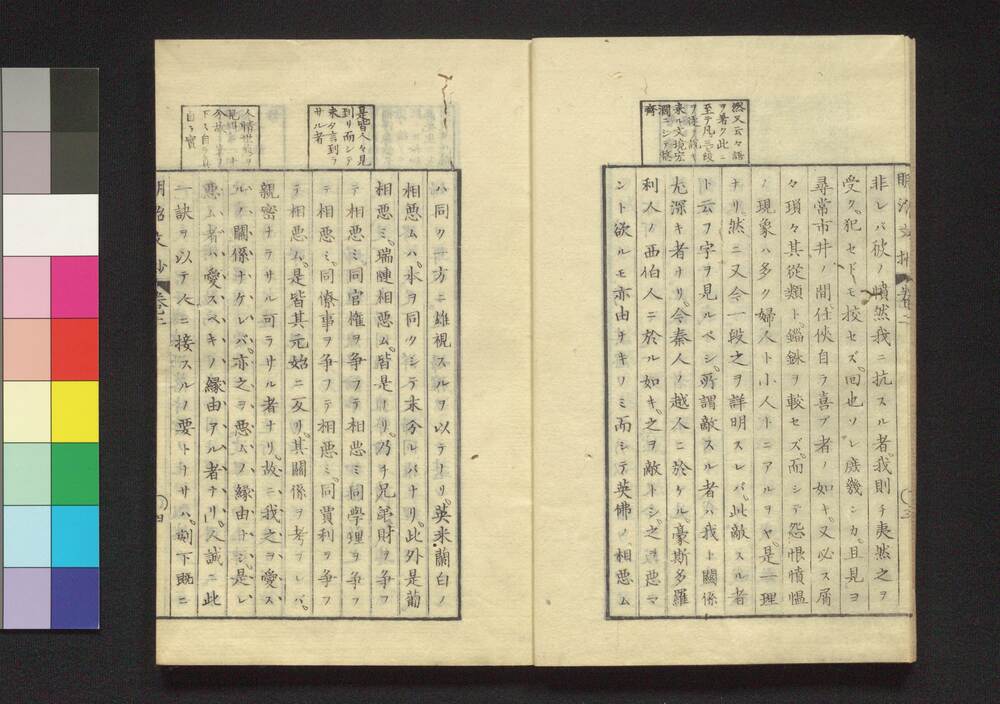 然又云々語
ヲ著ク此ニ
至テ凡三段
来ル文境宏
濶ニシテ
齊
非レバ彼ノ憤然我ニ抗スル者我則チ夷然之ヲ
受ク。犯セドモ挍セズ。回也ソレ庶幾シカ。且見ヨ
尋常市井ノ間任侠自ラ喜ブ者ノ如キ。又必ス屑
々瑣々其従類ト。錙銖ヲ較セズ。而シテ怨恨憤慍
ノ現象ハ多ク婦人ト小人トニアルヲヤ。是一理
ナリ。然ニ又今一段之ヲ詳明スレバ。此敵スル者
ト云フ字ヲ見ルベシ。所謂敵スル者ハ我ト關係
尤深キ者ナリ。今秦人ノ越人ニ於ケル。豪斯多羅
利人ノ西伯人ニ於ル如キ。之ヲ敵トシ之ヲ惡マ
ント欲ルモ亦由ナキノミ而シテ英佛ノ相惡ム
明治文抄 卷之二
十三
是皆人々見
到リ而シテ
未タ言到ラ
サル者
人情世故ヲ
自ラ實
ハ同ク一方ニ雄視スルヲ以テナリ。英米蘭白ノ
相惡ムハ。水ヲ同クシテ未分レバナリ。此外是葡
相惡ミ。瑞嗹相惡ム。皆是ナリ。乃チ兄弟財ヲ争フ
テ相惡ミ同官権ヲ争フテ相惡ミ同學理ヲ争フ
テ相惡ミ。同僚事ヲ争フテ相惡ミ。同賈利ヲ争フ
テ相惡ム。是皆其元始ニ反リ。其關係ヲ考フレバ。
親密ナラサル可ラサル者ナリ。故ニ我之ヲ愛ス
ルノ關係ナケレバ。亦之ヲ惡ムノ縁由ナシ。是レ
惡ム者ハ愛スベキノ縁由アル者ナリ。人誠ニ此
一訣ヲ以テ人ニ接スルノ要トナサハ。刻下既ニ
明治文抄 卷之二
十四